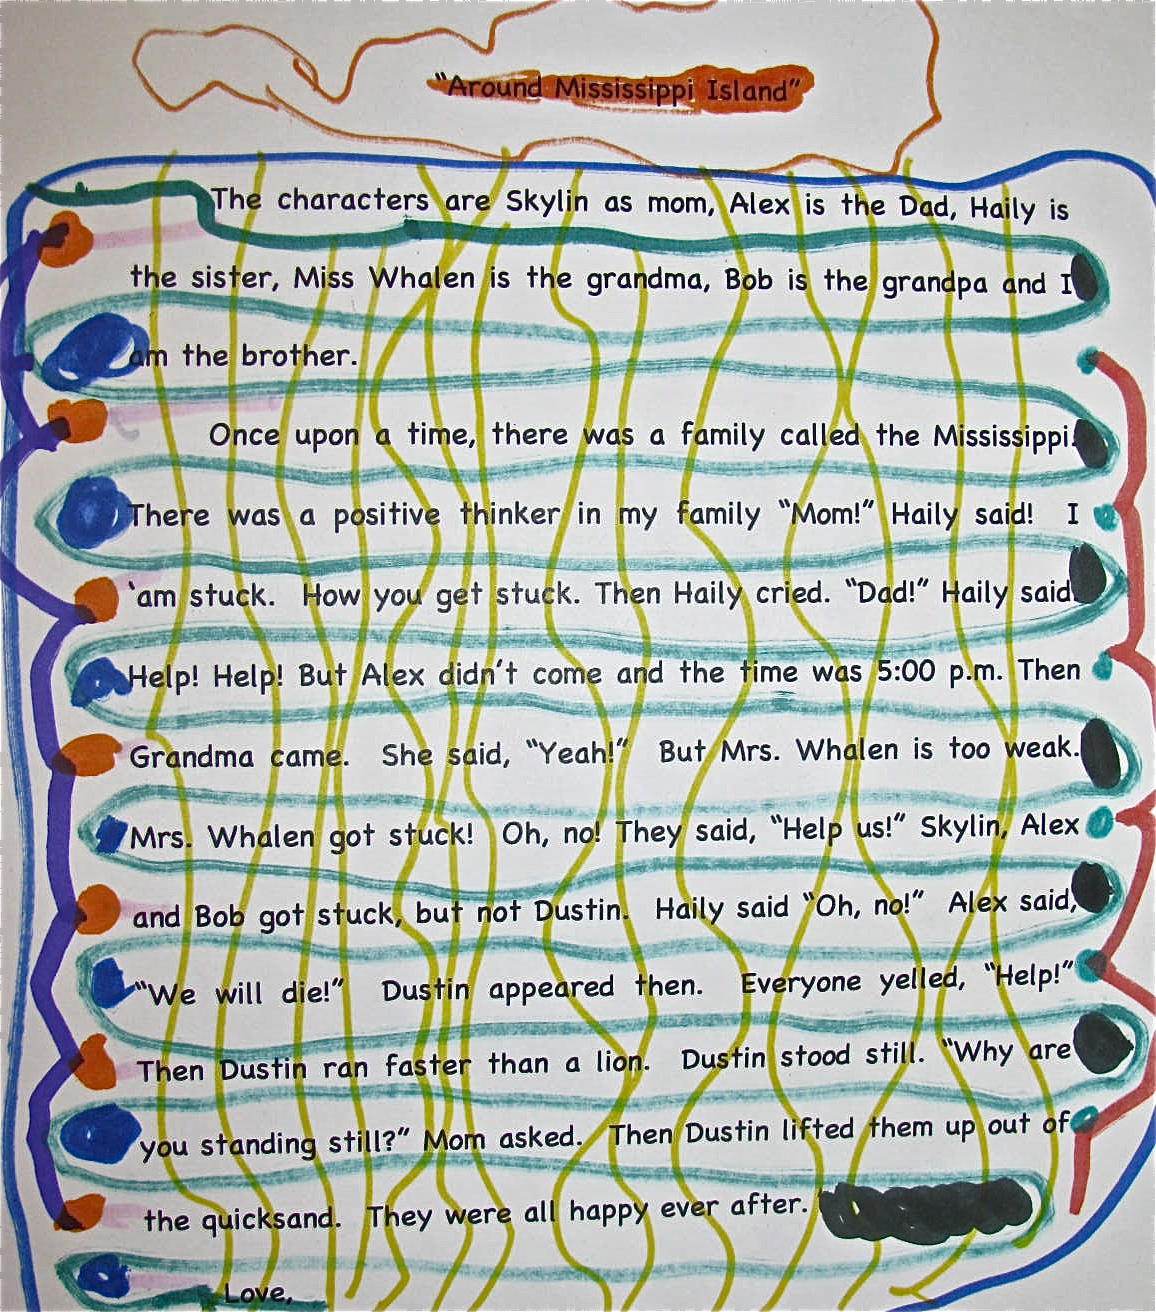 "Around Mississippi Island"
The characters are Skylin as mom, Alex is the Dad, Haily is
the sister, Miss Whalen is the grandma, Bob is the grandpa and I
am the brother.
Once upon a time, there was a family called the Mississippi.
There was a positive thinker in my family "Mom!" Haily said! I
'am stuck. How you get stuck. Then Haily cried. "Dad!" Haily said.
Help! Help! But Alex didn't come and the time was 5:00 p.m. Then
Grandma came. She said, "Yeah!" But Mrs. Whalen is too weak.
Mrs. Whalen got stuck! Oh, no! They said, "Help us!" Skylin, Alex
and Bob got stuck, but not Dustin. Haily said "Oh, no!" Alex said,
"We will die!" Dustin appeared then. Everyone yelled, "Help!"
Then Dustin ran faster than a lion. Dustin stood still. "Why are
you standing still?" Mom asked. Then Dustin lifted them up out of
the quicksand. They were all happy ever after.
Love,